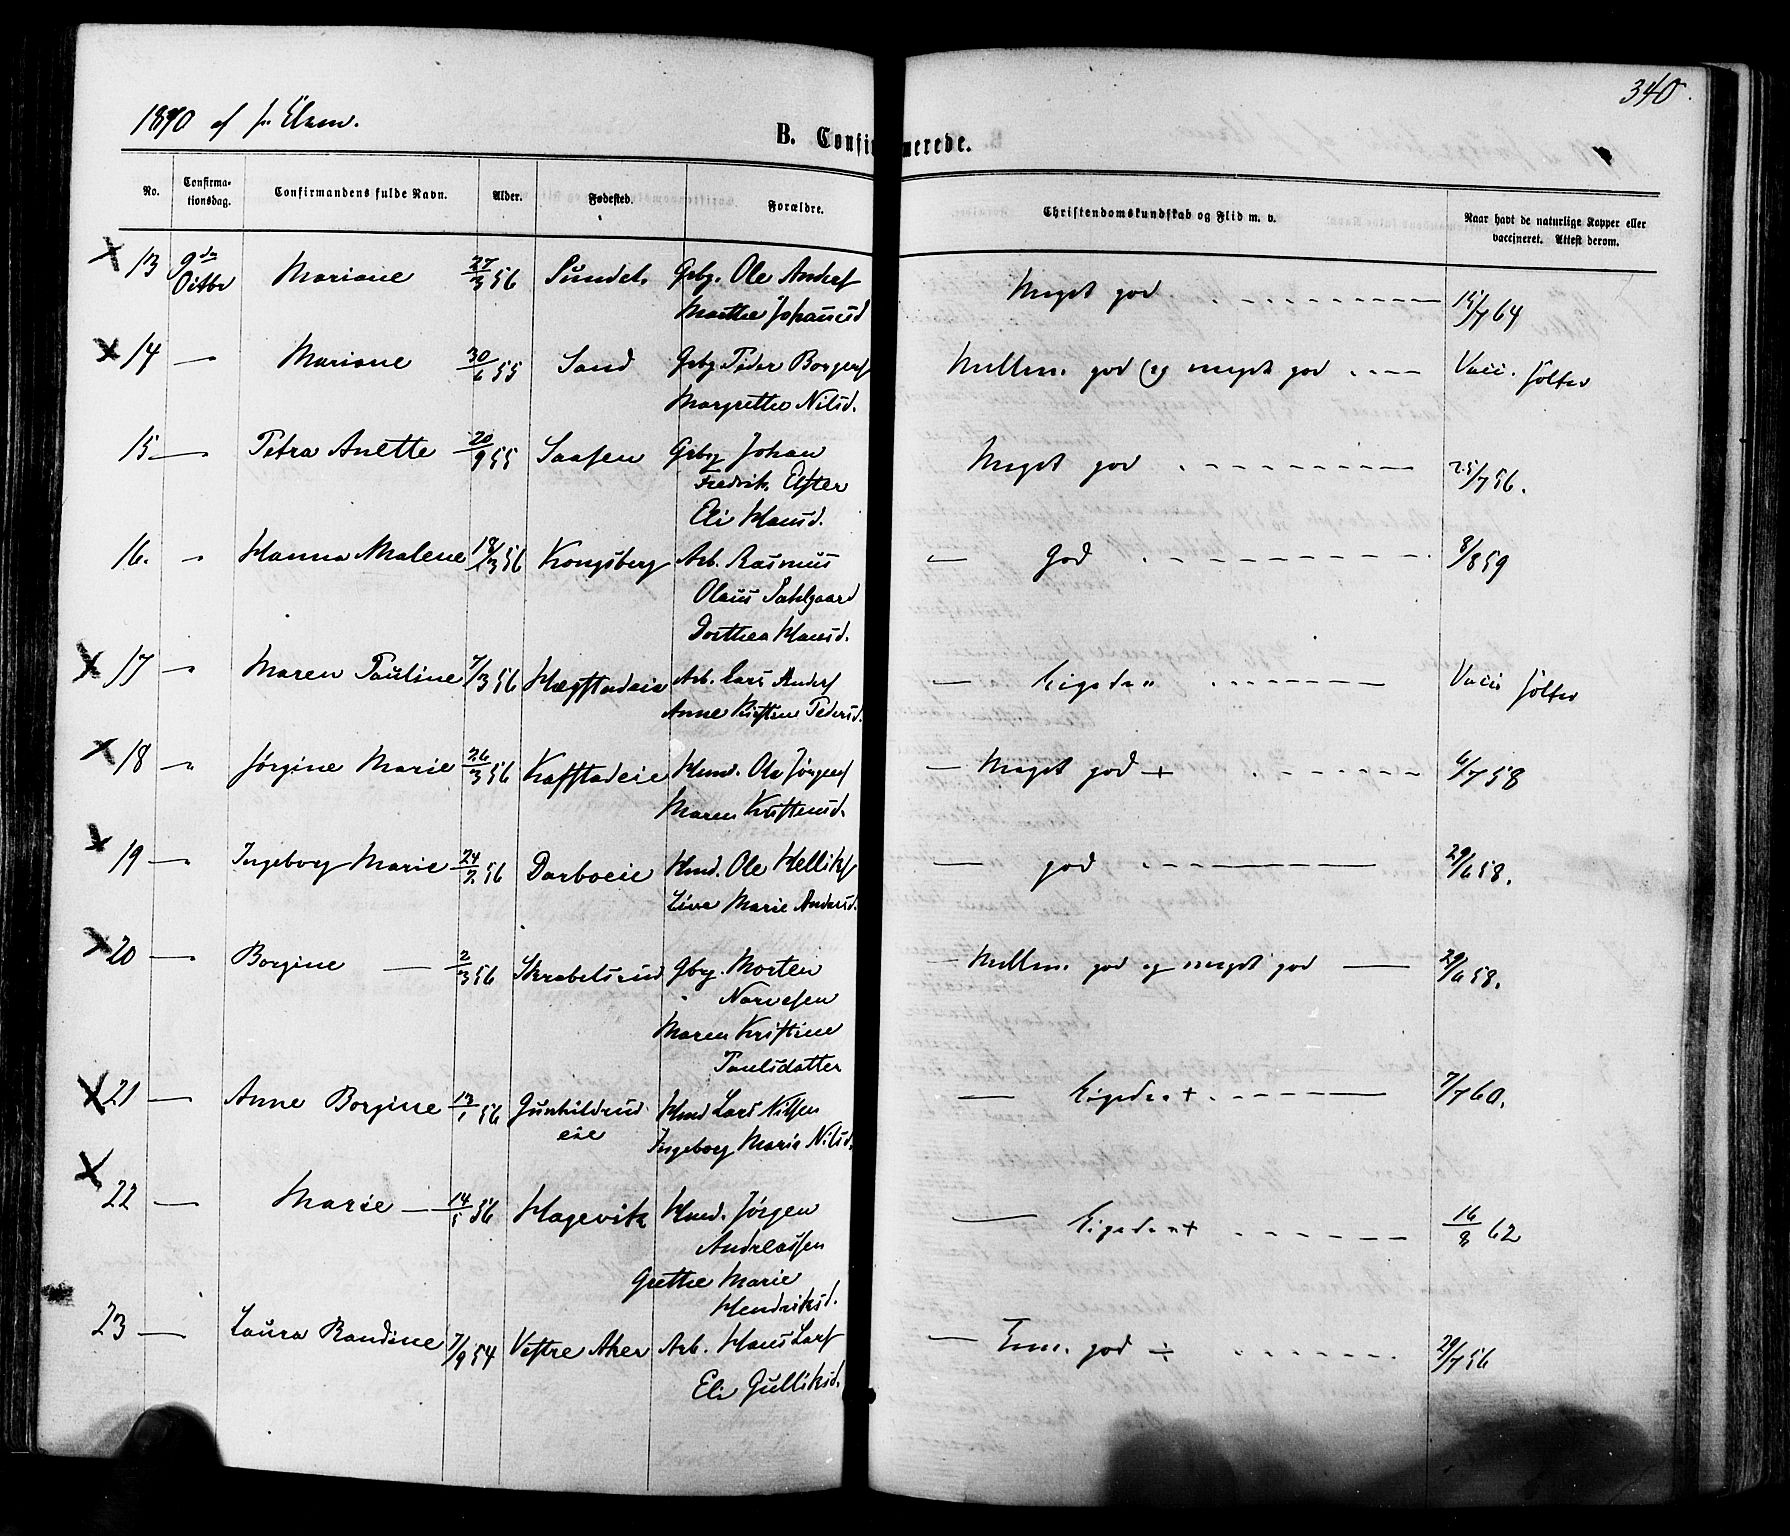 340.
1870 af
B. Confirmerede.
No. Confirma-tionsdag. Confirmandens fulde Navn. Alder. Fødested. Forældre. Christendomskundskab og Flid m. v. Naar havt de naturlige Kopper eller vaccineret. Attest derom.
13 9de Mariane 27/3 56 Gbg. Ole Anders Meget god 15/7 64
Octbr Marthe Johannesd
14 — Mariane 30/6 55 Sand Gbg Peder Borgers Mellem god og meget god Vacc. Holter
Margrethe Nilsd.
15 — Petra Anette 20/9 55 Saasen Gbg Johan Meget god 25/7 56.
Fredrik Elster
Eli Hansd.
16. " Hanna Malene 18/3 56 Kongsberg Arb. Rasmus — God 8/8 59
Olaus
Dorthea Hansd.
17 — Maren Pauline 7/3 56 Arb. Lars Anders — Ligeden Vacc Holter
Anne Kirstine Pedersd.
18 " Jørgine Marie 26/3 56 Hmd. Ole Jørgens — Meget god + 6/7 58
Maren
19 — Ingeborg Marie 24/2 56 Darboeie Hmd. Ole Helliks — god 29/6 58.
Live Marie Andersd.
20 — Borgine — 2/3 56 Skrabelsrud Gbg. Morten — Mellem god og meget god — 29/6 58.
Narvesen
Maren Kristine
Paulsdatter
21 — Anne Borgine 13/1 56 Gunhildrud Hmd Lars Nilsen — Ligeden + 7/7 60.
eie Ingeborg Marie Nilsd.
22 — Marie — 14/5 56 Hagevik Hmd. Jørgen — Ligeden + 16/8 62
Andreassen
Grethe Marie
Hendriksd.
23 — Laura Randine 7/9 54 Vestre Aker Arb. Hans Lars — Tem. god ÷ 29/7 56
Eli Gulliksd.